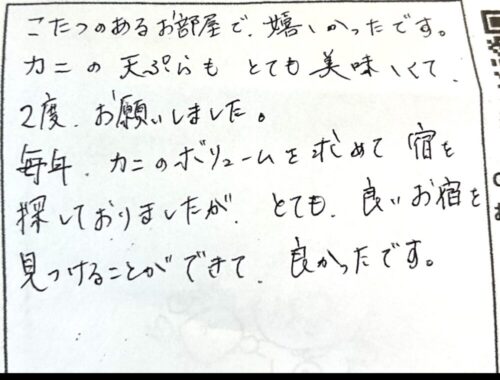 こたつのあるお部屋で、嬉しかったです。
カニの天ぷらも とても美味しくて、
2度、お願いしました。
毎年、カニのボリュームを求めて 宿を
探しておりましたが、とても、良いお宿を
見つけることができて、良かったです。